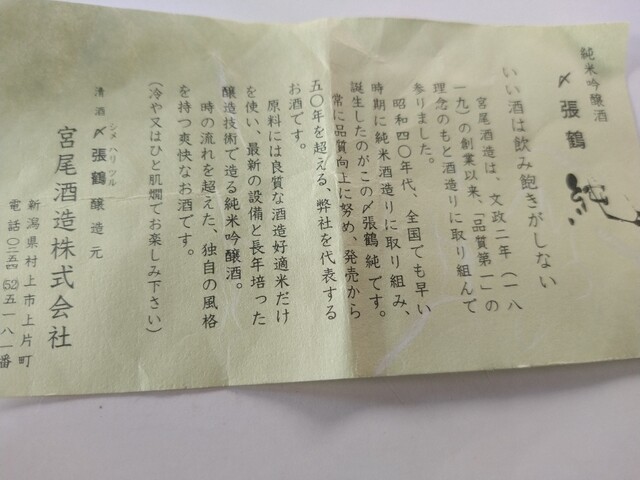 純米吟醸酒
〆張鶴 純
いい酒は飲み飽きがしない
宮尾酒造は、文政二年（一八
一九）の創業以来、「品質第一」の
理念のもと酒造りに取り組んで
参りました。
昭和四〇年代、全国でも早い
時期に純米酒造りに取り組み、
誕生したのがこの〆張鶴 純です。
常に品質向上に努め、発売から
五〇年を超える、弊社を代表する
お酒です。
原料には良質な酒造好適米だけ
を使い、最新の設備と長年培った
醸造技術で造る純米吟醸酒。
時の流れを超えた、独自の風格
を持つ爽快なお酒です。
（冷や又はひと肌燗でお楽しみ下さい）
清酒 〆張鶴 醸造元
シメハリツル
宮尾酒造株式会社
新潟県村上市上片町
電話〇二五四(52)五一八一番